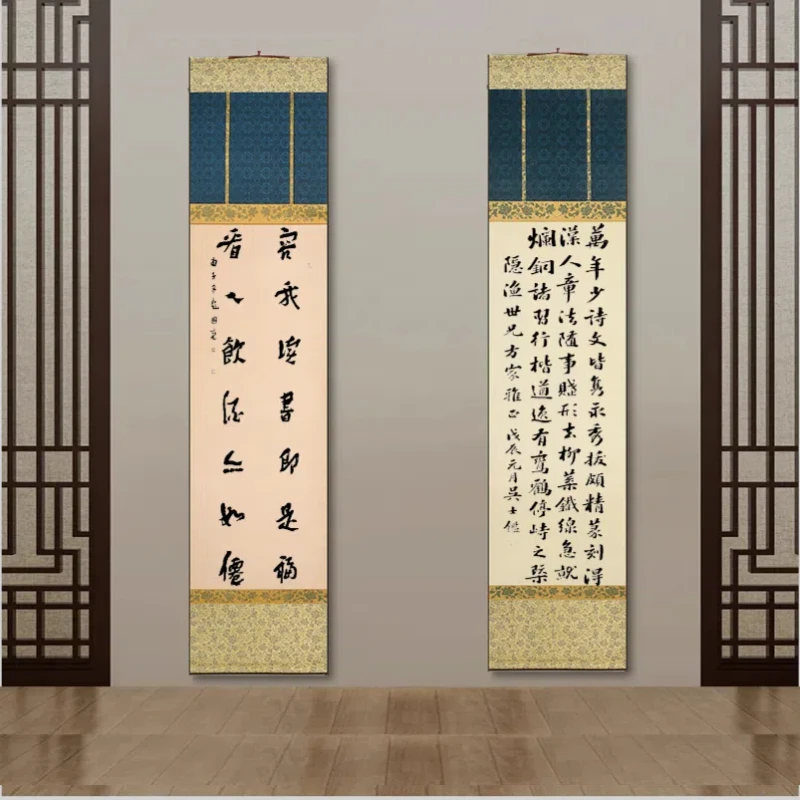 萬年少詩文皆雋永秀拔頗精篆刻得
漢人章法隨事賦形去柳葉鐵線急就
爛銅諸習行楷遒逸有鸞鶴停峙之槩
隱漁世兄方家雅正 戊辰元月吳士鑑
容我讀書即是福
看人飲酒亦如僊